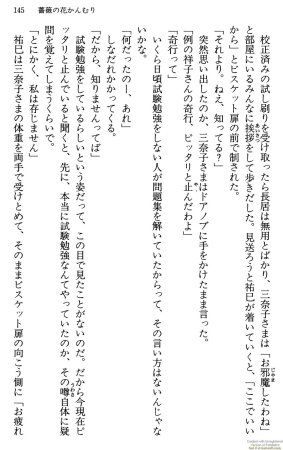 145　薔薇の花かんむり
　校正済みの試し刷りを受け取ったら長居は無用とばかり、三奈子さまは「お邪魔したわね」
と部屋にいるみんなに挨拶をして歩きだした。見送ろうと祐巳が着いていくと、「ここでいい
から」とビスケット扉の前で制された。
「それより。ねえ、知ってる？」
　突然思い出したのか、三奈子さまはドアノブに手をかけたまま言った。
「例の祥子さんの奇行、ピッタリと止んだわよ」
「奇行って」
　いくら日頃試験勉強をしない人が問題集を解いていたからって、その言い方はないんじゃな
いかな。
「何だったのー、あれ」
　しなだれかかってくる。
「だから、知りませんってば」
　試験勉強をしているらしいという姿だって、この目で見たことがないのだ。だから今現在ピ
ッタリと止んでいると聞くと、先に、本当に試験勉強なんてやっていたのか、その噂自体に疑
問を覚えてしまうくらいで。
「とにかく、私は存じません」
　祐巳は三奈子さまの体重を両手で受けとめて、そのままビスケット扉の向こう側に「お疲れ